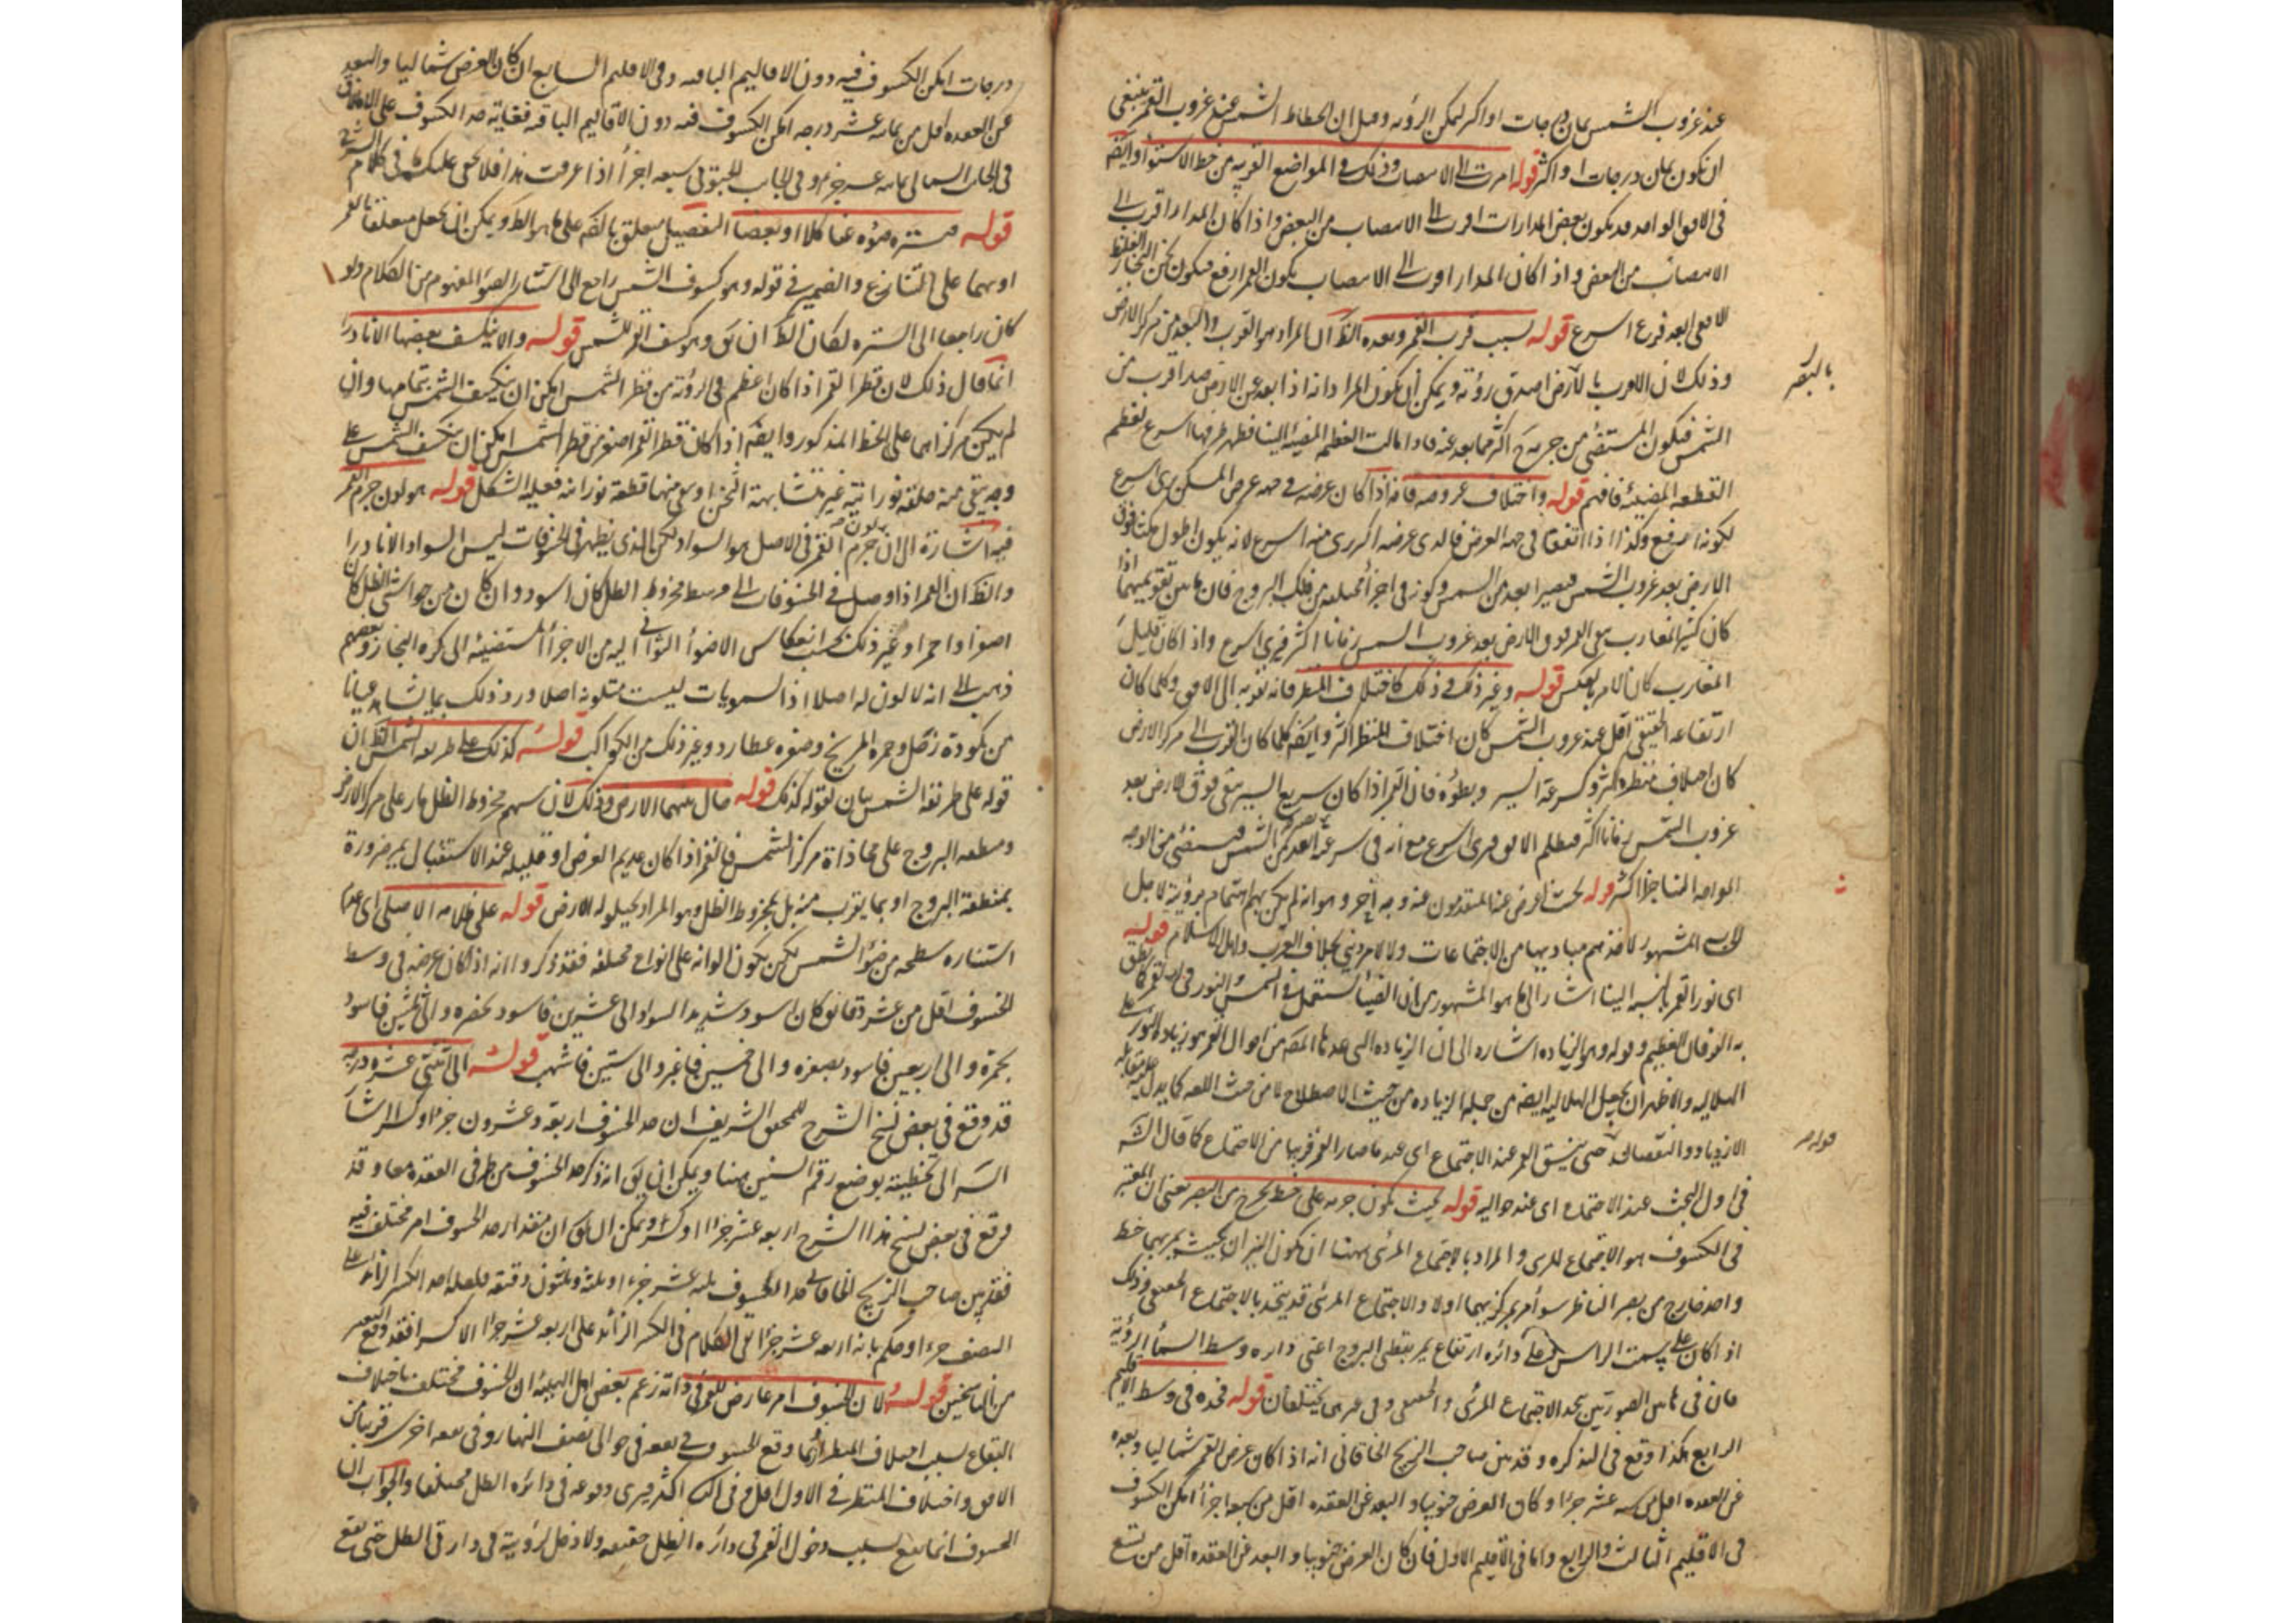 عند غروب الشمس ثمان درجات او اكثر لم يكن الرؤية وقيل ان انحطاط الشمس عند غروب القمر ينبغي
ان يكون ثمان درجات او اكثر قوله اقرب الى الانتصاب وذلك في المواضع القريبة من خط الاستواء وايضا
في الافق الواحد قد يكون بعض المدارات اقرب الى الانتصاب من البعض واذا كان المدار اقرب الى
الانتصاب من البعض واذا كان المدار اقرب الى الانتصاب يكون القمر ارفع فيكون ثخن البخار الغليظ
اسرع قوله بسبب قرب القمر وبعده الظ ان المراد هو القرب والبعد من مركز الارض
وذلك لان الاقرب بالارض اصدق رؤية ويمكن ان يكون المراد انه اذا بعد عن الارض اقرب من
الشمس فيكون المستضيء من جرمه اكثر مما بعد عنه فاذا مالت القطعة المضيئة الينا فظهر طرفها اسرع لعظم
القطعة المضيئة فافهم قوله واختلاف عروضه فانه اذا كان عرضه في جهة عرض المسكن يرى اسرع
لكونه ارفع وكذا اذا اتفقا في جهة العرض فالذي عرضه اكثر يرى اسرع لانه يكون اطول مكثا فوق
الارض بعد غروب الشمس فيصير ابعد من الشمس وكونه في اجزاء مختلفة من فلك البروج فان ما بين تقويميهما اذا
كان كثير المغارب بقي القمر فوق الارض بعد غروب الشمس زمانا اكثر فيرى اسرع واذا كان قليل
المغارب كان الامر بالعكس قوله وغير ذلك كاختلاف المنظر فانه يقربه الى الافق وكلما كان
ارتفاعه الحقيقي اقل عند غروب الشمس كان اختلاف المنظر اكثر وايضا كلما كان القرب الى مركز الارض
كان اختلاف منظره اكثر وكسرعة السير وبطؤه فان القمر اذا كان سريع السير يبقى فوق الارض بعد
غروب الشمس زمانا اكثر فيظلم الافق فيرى اسرع مع انه في سرعة البعد عن الشمس فيستضيء من الوجه
المواجه الينا جزءا اكثر قوله اعرض عنه المتقدمون عنه وجه آخر وهو انه لم يكن بهم اهتمام برؤية
المشهور لاخذهم مباديها من الاجتماعات ولا لامر ديني بخلاف العرب واهل الاسلام قوله
اى نور القمر بالنسبة الينا اشار الى ما هو المشهور من ان الضياء يستعمل في الشمس والنور في القمر كما نطق
به الفرقان العظيم وقوله وهو الزيادة اشارة الى ان الزيادة التي عدها المص من احوال القمر هو زيادة النور
الهلالية والاظهر ان يجعل الهلالية ايضا من جملة الزيادة من حيث الاصطلاح لا من حيث اللغة كما يدل عليه مقابلة
الازدياد والنقصان عند الاجتماع اى عند ما صار القمر قريبا من الاجتماع كما قال الش
في اول البحث عند الاجتماع اى عند حواليه قوله بحيث يكون جرمه على خط يخرج من البصر يعني ان المعتبر
في الكسوف هو الاجتماع المرئي والمراد بالاجتماع المرئي ههنا ان يكون النيران بحيث يمر بهما خط
واحد خارج من بصر الناظر سواء مر بمركزيهما اولا والاجتماع المرئي قد يتحد بالاجتماع الحقيقي وذلك
اذا كان على سمت الراس او على دائرة ارتفاع يمر بقطبي البروج اعني دائرة وسط السماء الرؤية
فان في هاتين الصورتين يتحد الاجتماع المرئي والحقيقي وفي غيرهما يختلفان قوله فحده في وسط الاقليم
الرابع هكذا وقع في التذكرة وقد بين صاحب الزيج الخاقاني انه اذا كان عرض القمر شماليا وبعده
عن العقدة اقل من عشر جزءا وكان العرض جنوبيا والبعد عن العقدة اقل من سبعة اجزاء امكن الكسوف
في الاقليم الثالث والرابع واما في الاقليم الاول فان كان العرض جنوبيا والبعد عن العقدة اقل من تسع
بالبصر
قوله
درجات امكن الكسوف فيه دون الاقاليم الباقية وفي الاقليم السابع ان كان العرض شماليا والبعد
عن العقدة اقل من ثمانية عشر درجة امكن الكسوف فيه دون الاقاليم الباقية فغاية حد الكسوف على الاطلاق
في الجانب الشمالي ثمانية عشر جزءا وفي الجانب الجنوبي تسعة اجزاء اذا عرفت هذا فلا يخفى عليك ما في كلام الش
قوله فيستر ضوءه عنا كلا او بعضا التفصيل متعلق بالضوء على ما هو الظ ويمكن ان يجعل متعلقا بالقمر
او بهما على التنازع والضمير في قوله وهو كسوف الشمس راجع الى استتار الضوء المفهوم من الكلام ولو
كان راجعا الى الستر لكان الظ ان يق وهو كسف القمر للشمس قوله والا ينكسف بعضها الا نادرا
انما قال ذلك لان قطر القمر اذا كان اعظم في الرؤية من قطر الشمس امكن ان ينكسف الشمس بتمامها وان
لم يكن مركزاهما على الخط المذكور وايضا اذا كان قطر القمر اصغر من قطر الشمس امكن ان ينكسف الشمس على
وجه يبقى منه حلقة نورانية غير متشابهة الثخن او يبقى منها قطعة نورانية نعلية الشكل قوله هو لون جرم القمر
فيه اشارة الى ان لون جرم القمر في الاصل هو السواد لكن الذي يظهر في الخسوفات ليس السواد الا نادرا
والظ ان القمر اذا وصل في الخسوفات الى وسط مخروط الظل كان اسود وان كان من حواشي الظل كان
اصفر او احمر او غير ذلك بحسب انعكاس الاضواء الثواني اليه من الاجزاء المستضيئة الى كرة البخار وبعضهم
ذهب الى انه لا لون له اصلا اذ السمويات ليست متلونة اصلا ورد ذلك بما يشاهد عيانا
من كمودة زحل وحمرة المريخ وصفرة عطارد وغير ذلك من الكواكب قوله كذلك على طريقة الشمس الظ ان
قوله على طريقة الشمس بيان لقوله كذلك قوله حال بينهما الارض وذلك لان سهم مخروط الظل مار على مركز الارض
ومنطقة البروج على محاذاة مركز الشمس فالقمر اذا كان عديم العرض او قليله عند الاستقبال يمر ضرورة
بمنطقة البروج او بما يقرب منه بل بمخروط الظل وهو المراد بحيلولة الارض قوله على ظلامه الاصلي اى عدم
استنارة سطحه من ضوء الشمس لكن يكون الوانه على انواع مختلفة فقد ذكروا انه اذا كان عرضه في وسط
الخسوف اقل من عشر دقائق كان اسود شديد السواد والى عشرين فاسود بخضرة والى ثلثين فاسود
بحمرة والى اربعين فاسود بصفرة والى خمسين فاغبر والى ستين فاشهب قوله الى اثنتي عشرة درجة
قد وقع في بعض نسخ الشرح للمحقق الشريف ان حد الخسوف اربعة وعشرون جزءا وكسر اشار
الش الى تخطئته بوضع رقم الستين ههنا ويمكن ان يق انه ذكر حد الخسوف من طرفي العقدة معا وقد
وقع في بعض نسخ هذا الشرح اربعة عشر جزءا وكسر ويمكن ان يق ان مقدار حد الخسوف امر مختلف فيه
فقد بين صاحب الزيج الخاقاني حد الخسوف ثلثة عشر جزءا وثلثة وثلثون دقيقة فلعله اخذ الكسر الزائد على
النصف جزءا وحكم بانه اربعة عشر جزءا بقي الكلام في الكسر الزائد على اربعة عشر جزءا الا كسرا فقد وقع التغيير
من الناسخين قوله لان الخسوف امر عارض للقمر في ذاته زعم بعض اهل الهيئة ان الخسوف مختلف باختلاف
البقاع بسبب اختلاف المنظر اذا وقع الخسوف في بقعة في حوالى نصف النهار وفي بقعة اخرى قريبا من
الافق واختلاف المنظر في الاول اقل وفي الثاني اكثر فيرى وقوعه في دائرة الظل مختلفا والجواب ان
الخسوف انما يقع بسبب دخول القمر في دائرة الظل حقيقة ولا دخل لرؤيته في دائرة الظل حتى يقع